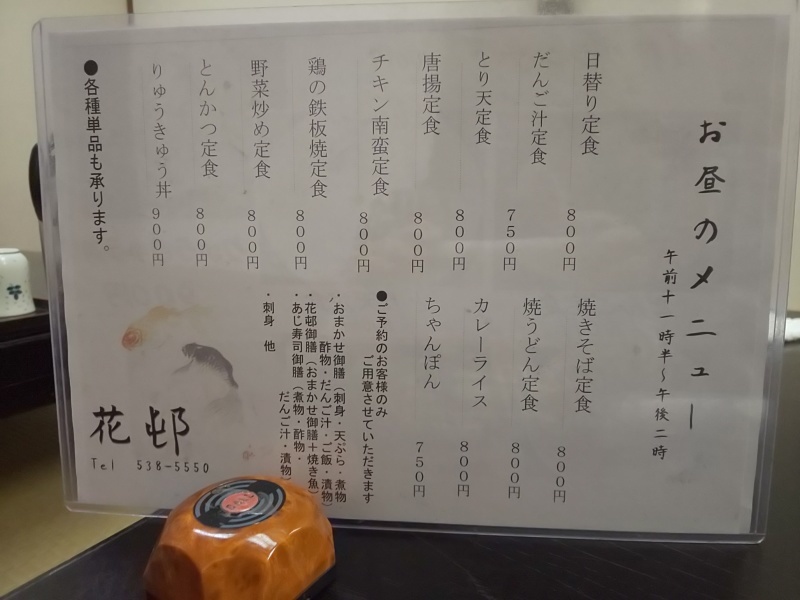 お昼のメニュー
午前十一時半～午後二時
日替り定食 800円
だんご汁定食 750円
とり天定食 800円
唐揚定食 800円
チキン南蛮定食 800円
鶏の鉄板焼定食 800円
野菜炒め定食 800円
とんかつ定食 800円
りゅうきゅう丼 900円
●各種単品も承ります。
焼きそば定食 800円
焼うどん定食 800円
カレーライス 800円
ちゃんぽん 750円
●ご予約のお客様のみ
ご用意させていただきます
・おまかせ御膳(刺身・天ぷら・煮物
酢物・だんご汁・ご飯・漬物)
・花邨御膳(おまかせ御膳+焼き魚)
・あじ寿司御膳(煮物・酢物・
だんご汁・漬物)
・刺身 他
花邨
Tel 538-5550